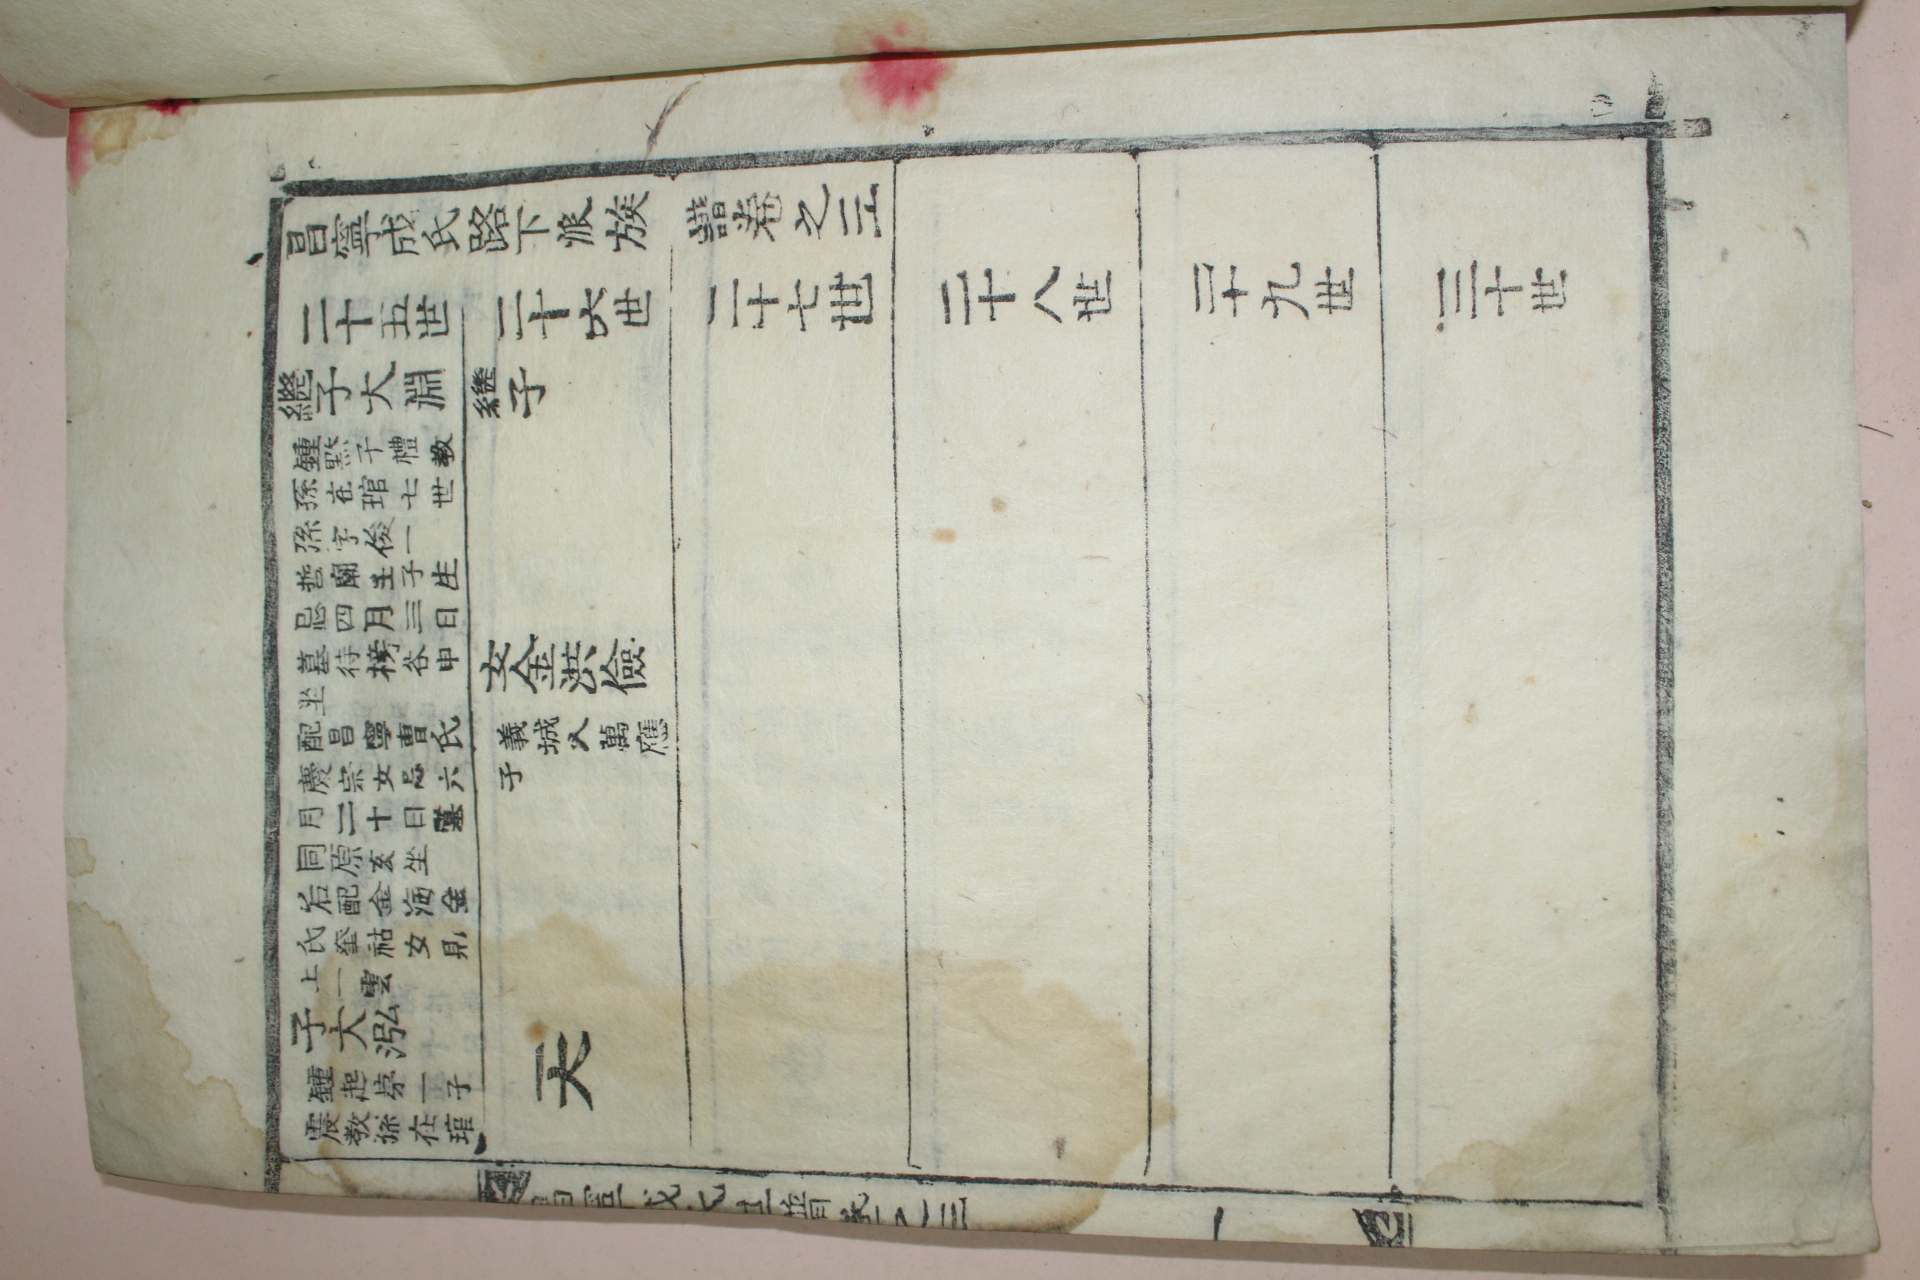 昌寧成氏路下派族譜卷之三
二十五世 二十六世 二十七世 二十八世 二十九世 三十世
繼子大淵
鍾黙子禮教
孫在琯七世
孫字俊一
哲廟壬子生
忌四月三日
墓待榜谷申
坐
配昌寧曺氏
慶宗女忌六
月二十日墓
同原亥坐
后配金海金
氏奎祜女見
上一雲
子大泓
鍾起 一子
震教孫在琯
繼子
女金洪儉
義城人萬應
子
无
昌寧成氏世譜卷之三 一